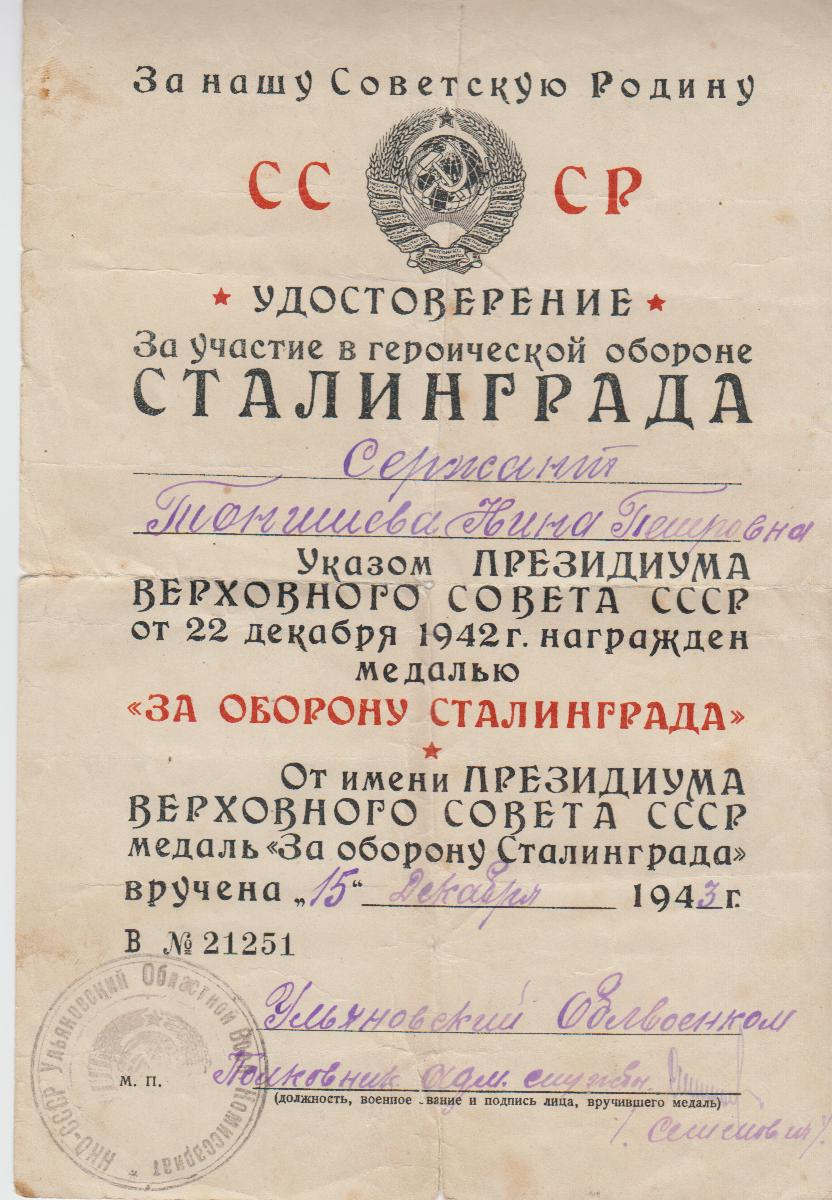 За нашу Советскую Родину
СССР
УДОСТОВЕРЕНИЕ
За участие в героической обороне
СТАЛИНГРАДА
Сержант
Нина Петровна
Указом ПРЕЗИДИУМА
ВЕРХОВНОГО СОВЕТА СССР
от 22 декабря 1942 г. награжден
медалью
«ЗА ОБОРОНУ СТАЛИНГРАДА»
От имени ПРЕЗИДИУМА
ВЕРХОВНОГО СОВЕТА СССР
медаль «За оборону Сталинграда»
вручена „15“ Декабря 1943 г.
В № 21251
Ульяновский Облвоенком
Полковник адм. служб.
М. П.
(должность, военное звание и подпись лица, вручившего медаль)
НКО-СССР Ульяновский Областной Воен Комиссариат